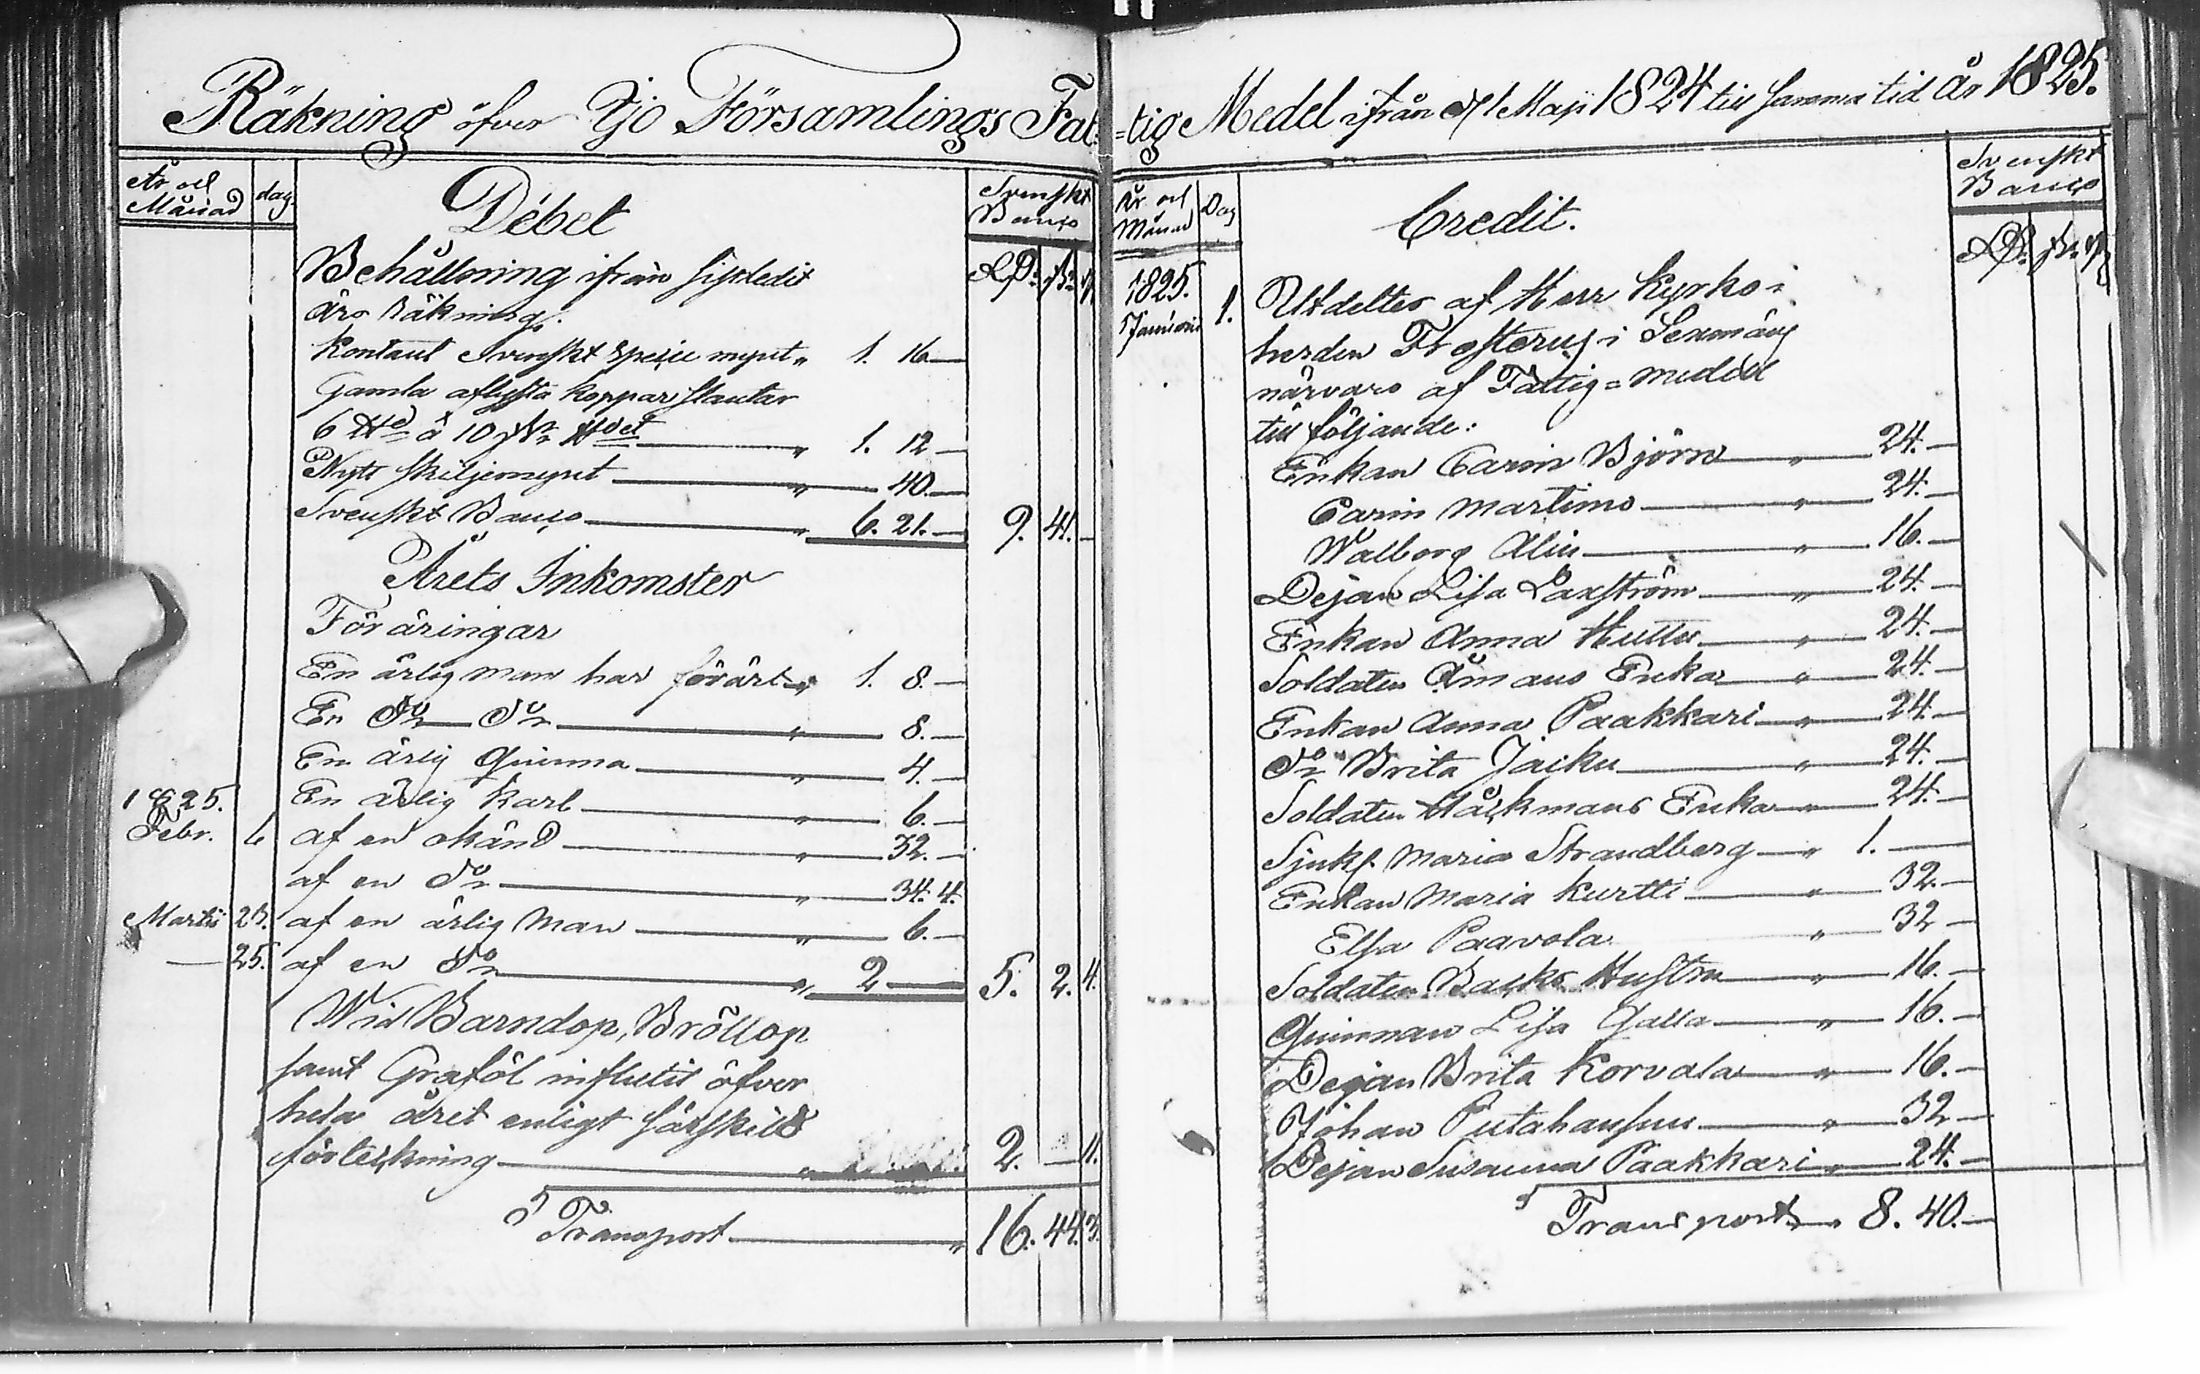 Räkning öfver Ijo Församlings Fat=
År och Månad dag. Débet Svenskt Banco
Behållning ifrån sistledit
Rd. sk. r.
års räkning.
Kontant Svenskt Specie mynt „ 1. 16 —
Gamla aflysta koppar slantar
6 ℔d à 10 sk. ℔det „ 1. 12 —
Nytt skiljemynt „ 40. —
Svenskt Banco „ 6. 21. — 9. 41. —
Årets Inkomster
Föräringar
En ärlig man har förärt „ 1. 8. —
En Do Do „ 8. —
En ärlig Quinna „ 4. —
1825. En ärlig Karl „ 6. —
Febr. 6 af en okänd „ 32. —
af en Do „ 34. 4.
Martii 23. af en ärlig Man „ 6. —
— 25. af en Do „ 2 — 5. 2. 4.
Wid Barndop, Bröllop
samt Graföl influtit öfver
hela året enligt särskild
förteckning „ 2. — 11.
Transport „ 16. 44. 3.
=tig Medel ifrån d. 1 Maji 1824 till samma tid år 1825.
År och Månad Dag Credit. Svenskt Banco
Rd. sk. r.
1825. Januarii 1. Utdeltes af Herr Kyrko=
herden Frosterus i Sexmäns
närvaro af Fattig=medel
till följande:
Enkan Carin Björn „ 24. —
Carin Martimo „ 24. —
Walborg Alin „ 16. —
Dejan Lisa Laxström „ 24. —
Enkan Anna Huttu „ 24. —
Soldaten Åmans Enka „ 24. —
Enkan Anna Paakkari „ 24. —
Do Brita Jaiku „ 24. —
Soldaten Håckmans Enka „ 24. —
Sjukl. Maria Strandberg „ 1. —
Enkan Maria Kurtti „ 32. —
Elsa Paavola „ 32 —
Soldaten Backs Hustru „ 16. —
Quinnan Lisa Galla „ 16. —
Dejan Brita Korvala „ 16. —
Johan Putahansuu „ 32 —
Dejan Susanna Paakkari „ 24. —
Transport „ 8. 40. —